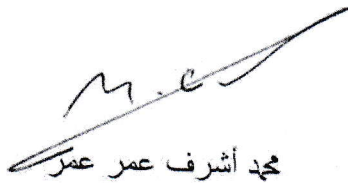 محمد أشرف عمر عمر